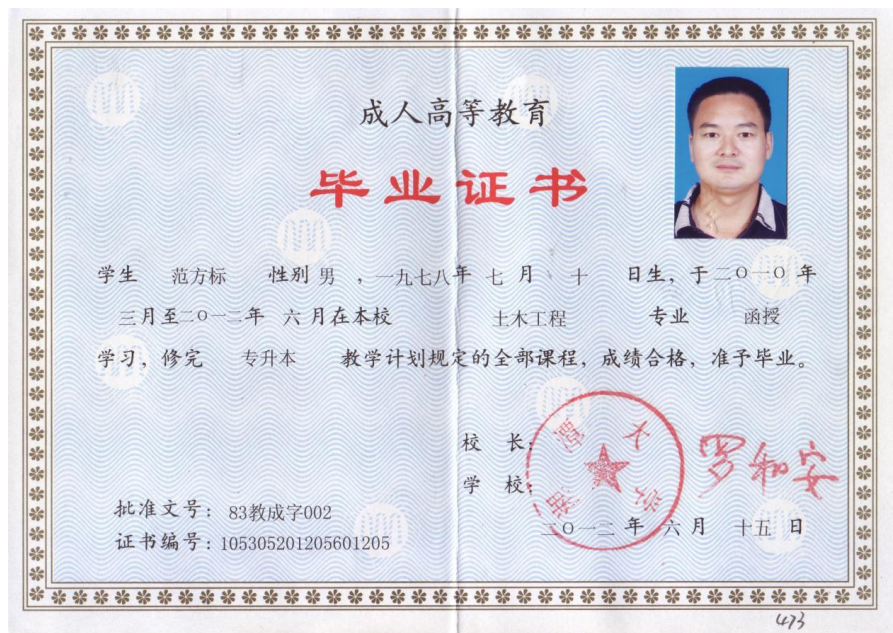 成人高等教育
毕业证书
学生 范方标 性别 男 ，一九七八年 七 月 十 日生，于二〇一〇年
三月至二〇一二年 六 月在本校 土木工程 专业 函授
学习，修完 专升本 教学计划规定的全部课程，成绩合格，准予毕业。
校 长：罗和安
学 校：
湘潭大学
批准文号：83教成字002
证书编号：105305201205601205
二〇一二 年 六 月 十五 日
473